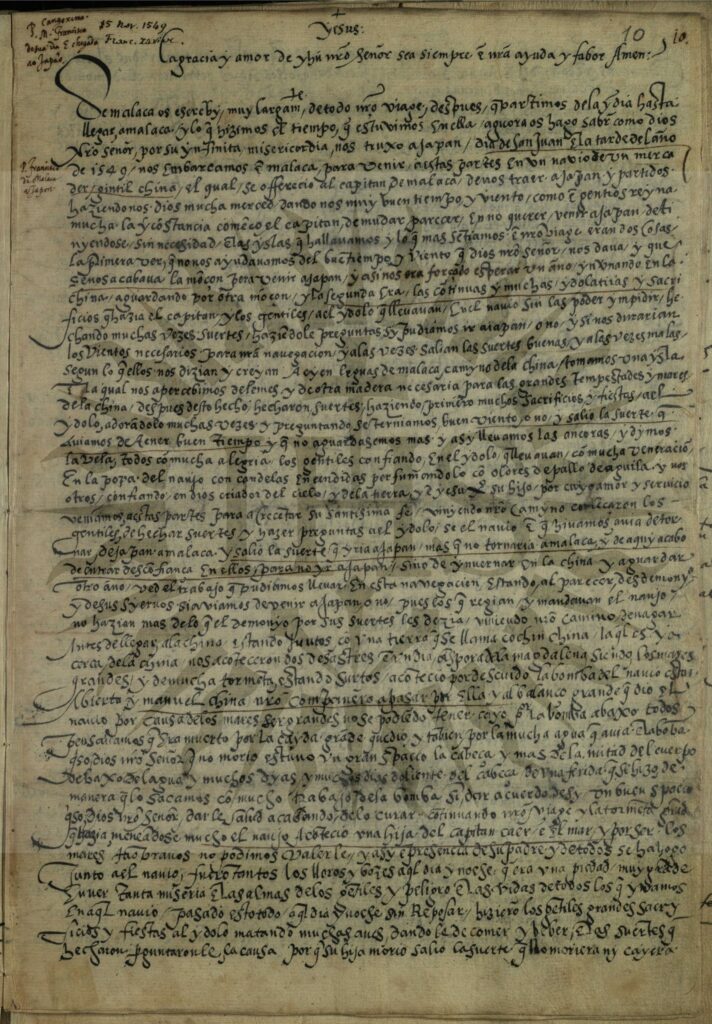 P. Cangoxima 5 Nov. 1549
P. M. Francisco
chegada Franc. Xavier.
ao Japão
10 10
+
yesus:
la gracia y amor de yhũ nr̃o señor sea siempre ẽ nr̃a ayuda y fabor Amen:
De malaca os escreby, muy largamte, de todo nr̃o viage, despues, q̃ partimos de la yndia hasta
llegar, a malaca y lo q̃ hizimos el tiempo, q̃ estuvimos en ella, aguora os hago saber como dios
nr̃o señor, por su ynfinita misericordia, nos truxo a Japan, dia de san Juan ẽ la tarde del año
P. Francisco
de Malaca
a Japon
de 1549, nos embarcamos ẽ malaca, para venir, a estas partes en vn navio de vn merca
der, gintil china, el qual, se offerecio al capitan de malaca, de nos traer a Japan y partidos
haziendonos dios mucha merced, dando nos muy buen tiempo, y viento, como ẽ gentios reyna
mucha la yncostancia comẽço el capitan, de mudar parecer, en no querer, venir a Japan deti
nyendose, sin necesidad, ẽ las yslas q̃ hallavamos y lo q̃ mas sẽtiamos ẽ nr̃o viage eran dos cosas,
la primera ver, q̃ no nos ayudavamos del buẽ tiempo y viento q̃ dios nr̃o señor, nos dava, y que
se nos acabava la moçon pera venir a Japan, y asi nos era forçado esperar un año, ynvnando en la
china, aguardando por otra moçon, y la segunda era, las cõtinuas y muchas, ydolatrias y sacri
ficios q̃ hazia el capitan y los gentiles, a el ydolo q̃ llevavan, en el navio sin las poder ympidir, he
chando muchas vezes suertes, haziẽdole preguntas si pudiamos ir a iapan, o no, y si nos durarian
los vientos necesarios para nr̃a navegacion, y a las vezes salian las suertes buenas, y a las vezes malas,
segun lo q̃ ellos nos dizian y creyan, A cẽ leguas de malaca, camyno de la china, tomamos una ysla,
ẽ la qual nos apercebimos de lemes, y de otra madera necesaria para las grandes tempestades y mares
de la china, despues desto hecho, hecharon suertes, haziendo primero muchos sacrificios y fiestas, a el
ydolo, adorãdolo muchas vezes, y preguntando, se terniamos buen viento, o no, y salio la suerte, q̃
aviamos de tener buen tiempo y q̃ no aguardasemos mas, y asy llevamos las ancoras, y dymos
la vela, todos cõ mucha alegria, los gentiles confiando, en el ydolo, q̃ llevavan, cõ mucha veneraciõ
en la popa del navio con candelas encendidas perfumãdolo cõ olores de pallo de aguila, y nos
otros, confiando, en dios criador del cielo, y de la tierra, y d yesu xp̃o su hijo, por cuyo amor y servicio
veniamos, a estas partes para acrecẽtar su santissima fe, viniendo nr̃o camyno comẽçaron los
gentiles, de hechar suertes y hazer preguntas a el ydolo, se el navio ẽ q̃ hivamos avia de tor
nar, de Japan a malaca y salio la suerte q̃ yria a Japan, mas q̃ no tornaria a malaca, y de aquy acabo
de entrar desconfiãca en ellos, para no yr a Japan, sino de ynvernar en la china, y aguardar
otro ano, ved el trabajo q̃ pudiamos llevar en esta navegacion, estando, al parecer, del demonyo
y de sus syervos si aviamos de venir a Japan, o no, pues los q̃ regian, y mandavan el navio,
no hazian mas de lo q̃ el demonyo por sus suertes les dezia, viniendo nr̃o camino de vagar
antes de llegar, a la china, estando juntos cõ vna tierra q̃ se llama cochin china, la ql es ya
cerca de la china, nos acõtecieron dos desastres en un dia, bispora de la magdalena siẽdo los mares
grandes, y de mucha tormẽta, estando surtos, acõtecio por descuido la bomba del navio estar
abierta y manuel, china nr̃o companero a pasar por ella, y al balanço grande q̃ dio el
navio por causa de los mares ser grandes, no se podiẽdo tener, cayo por la bomba abaxo todos
pensavamos q̃ era muerto por la cayda grãde que dio, y tãbien por la mucha agua q̃ avia ẽ la bõba
q̃so, dios nr̃o señor q̃ no morio, estuvo un gran spacio la cabeca y mas de la mitad del cuerpo
debaxo del agua, y muchos dyas doliente de la cabeca de una ferida, q̃ se hizo de
manera q̃ lo sacamos cõ mucho trabajo, de la bomba si dar acuerdo de sy un buen spacio
q̃so, dios nr̃o señor dar le salud, acabando, de lo curar, cõtinuando nr̃o viaje y la tormẽta grãd
q̃ hazia, meneãdose mucho el navio, acõtecio una hija del capitan caer ẽ el mar, y por ser los
mares tã bravos no podimos valerle, y asy ẽ presencia de su padre y de todos se hahogo
junto a el navio, fuerõ tantos los lloros y bozes aql dia y noche q̃ era una piedad muy grãde
en ver tanta miseria ẽ las almas de los gẽtiles y peligro ẽ las vidas de todos los q̃ yvamos
en aql navio, pasado esto todo aql dia y noche sin reposar, hizierõ los gẽtiles grandes sacry
ficios y fiestas al ydolo matando muchas aves, dando le de comer y bever, ẽ las suertes q̃
hecharon, p̃guntaronle la causa por q̃ su hija morio salio la suerte q̃ no moriera ny cayera